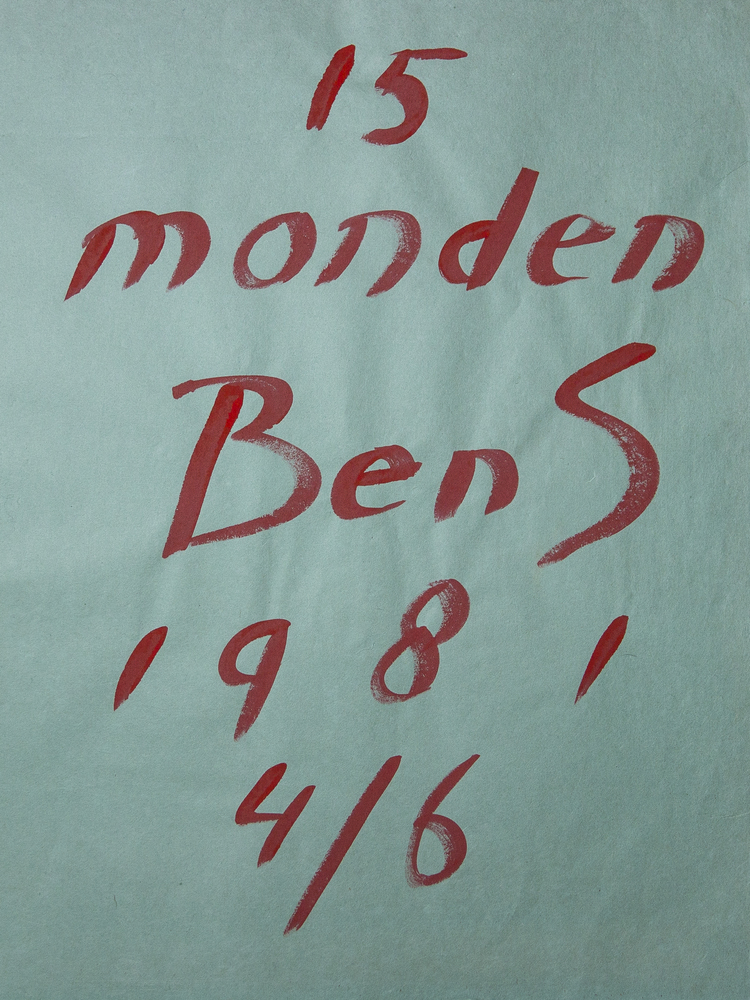 15
monden
Ben S
1981
4/6